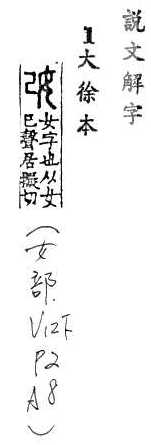 說文解字
1大徐本
妀
女字也从女
己聲居擬切
（女部.V12下P2A8）